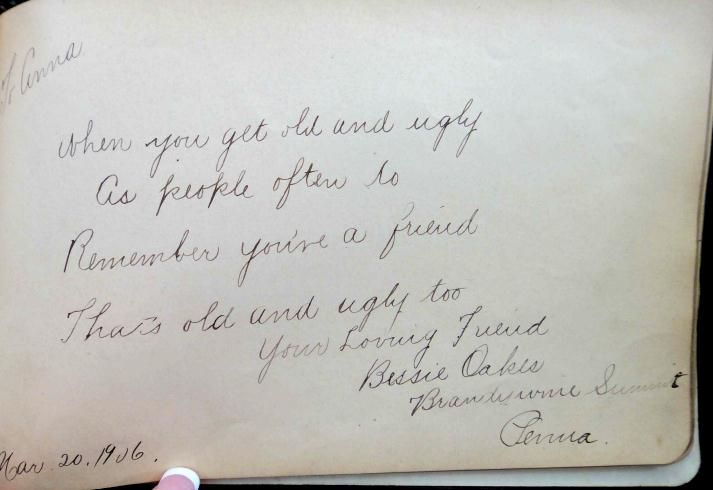 To Anna
When you get old and ugly
As people often to
Remember you've a friend
Thats old and ugly too
Your Loving Friend
Bessie Oakes
Brandywine Summit
Penna.
Mar. 20. 1906.